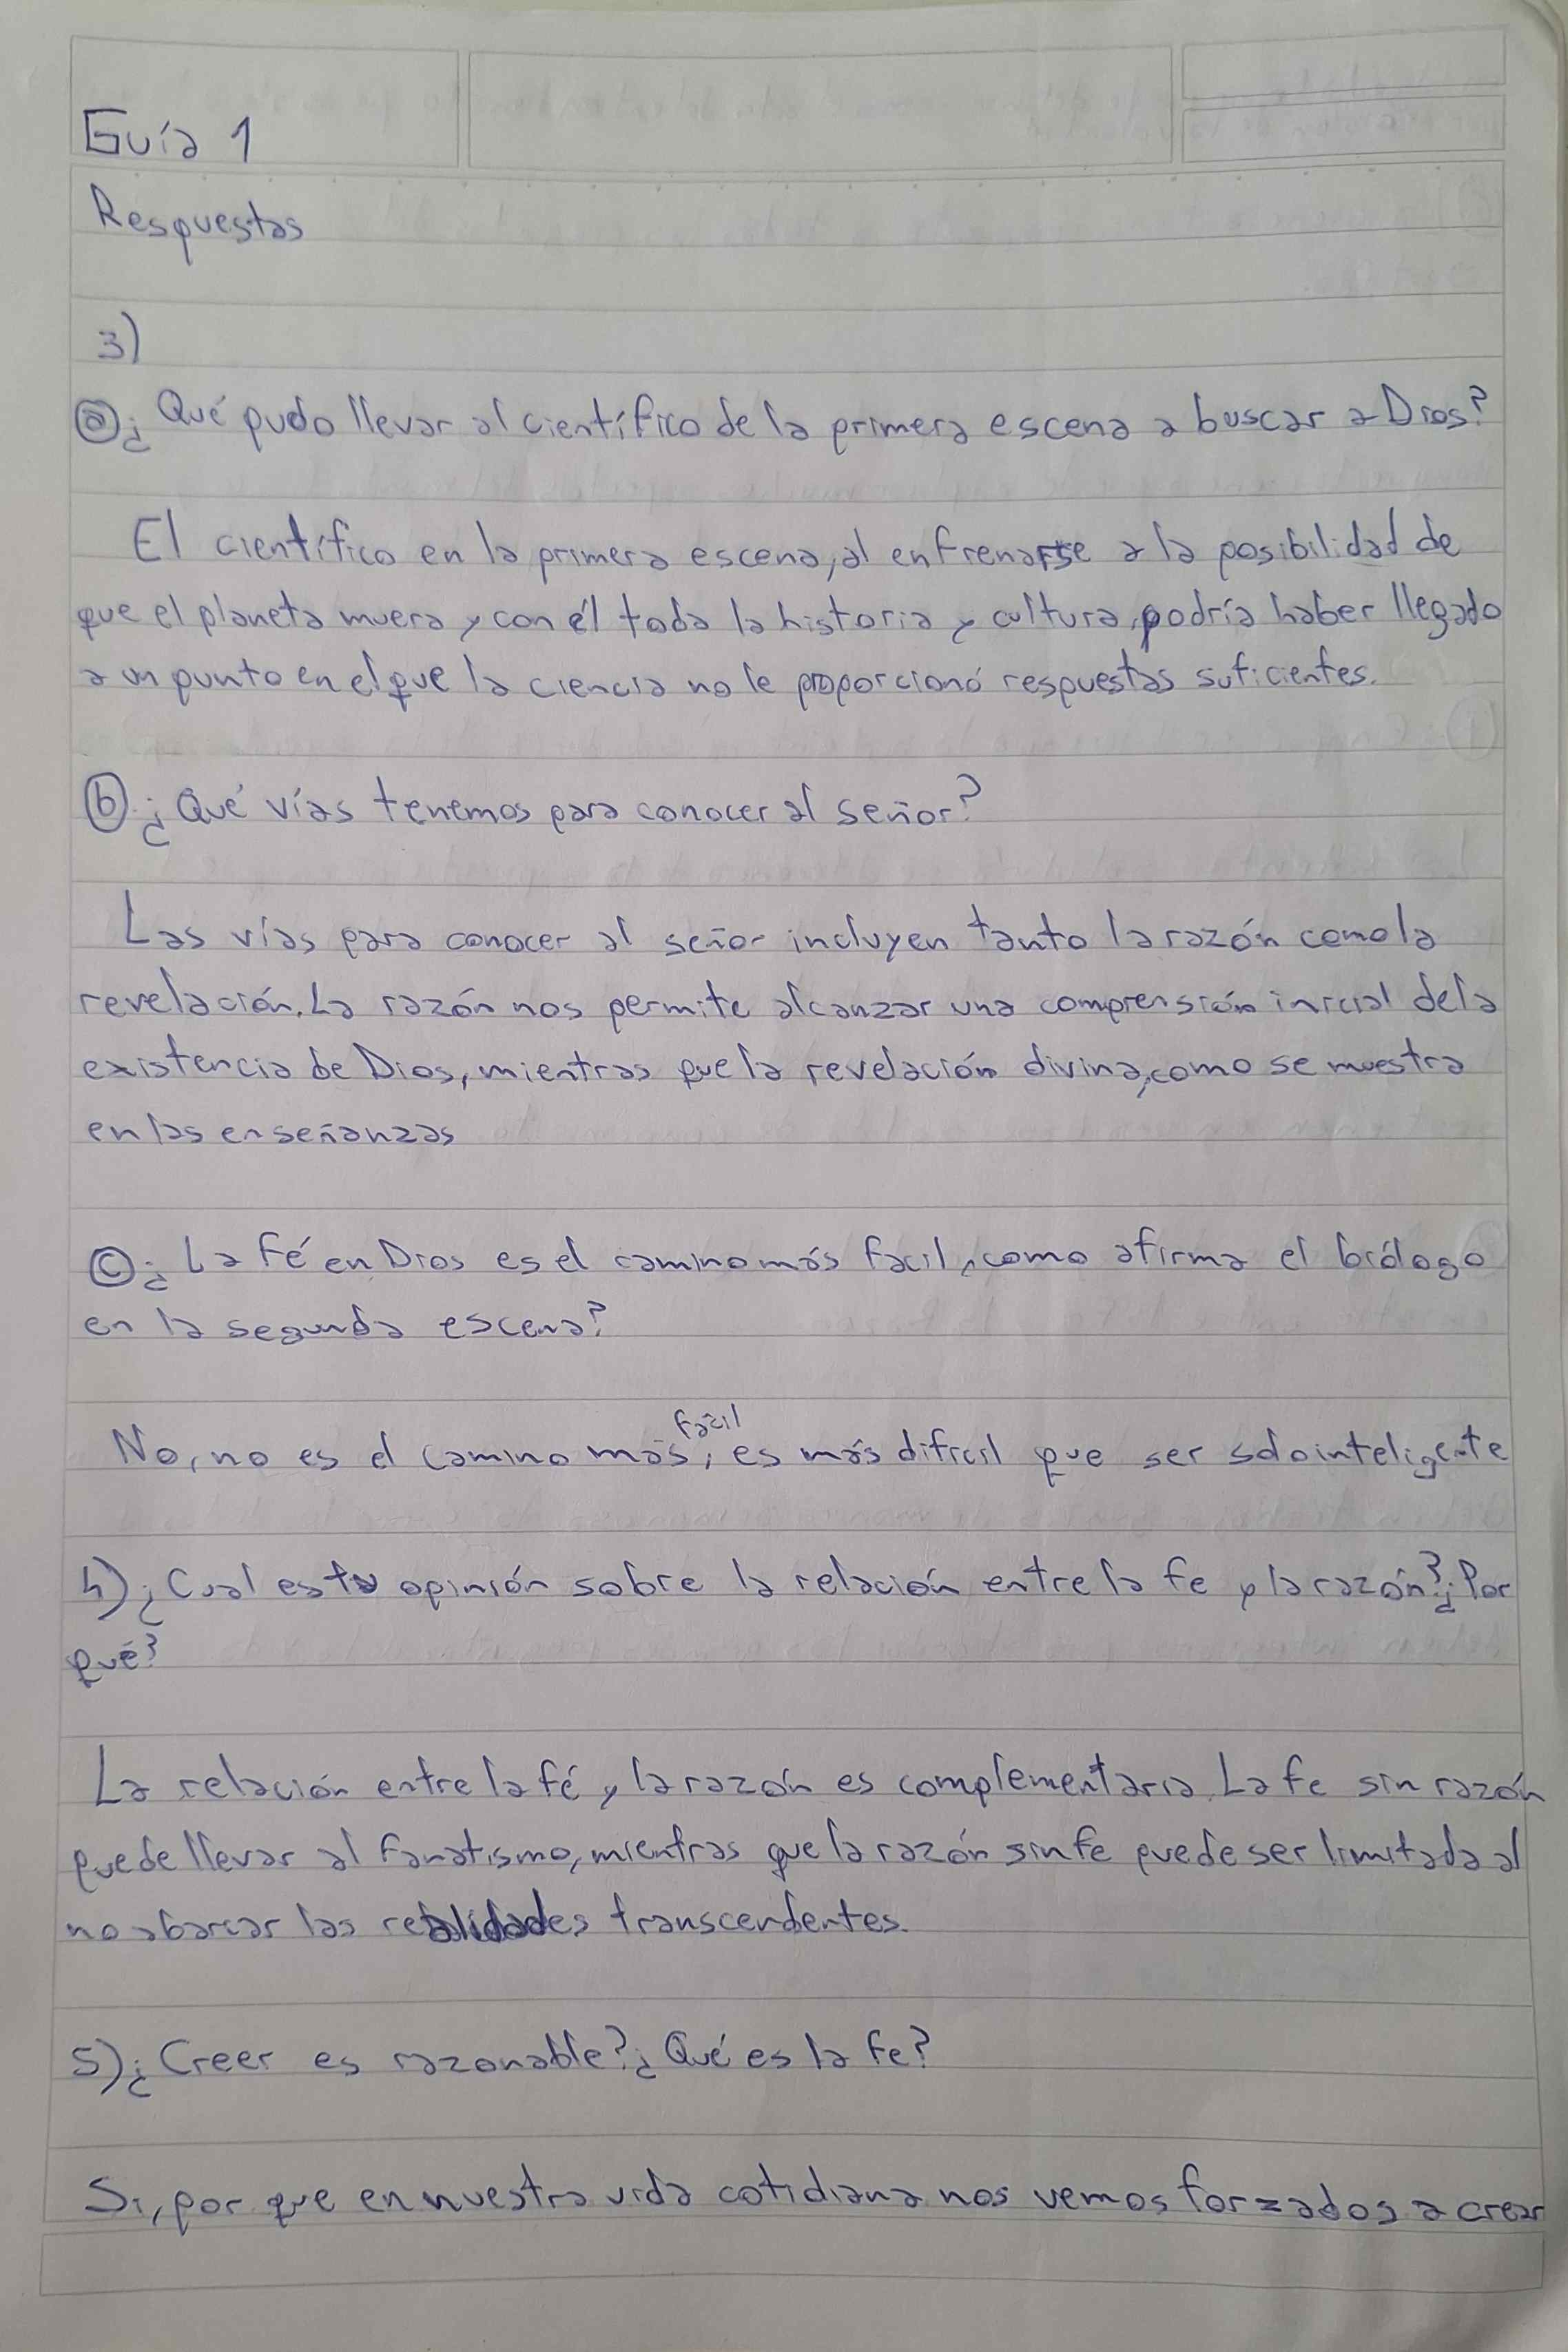 Guía 1
Respuestas
3)
ⓐ¿Qué pudo llevar al científico de la primera escena a buscar a Dios?
El científico en la primera escena, al enfrenarse a la posibilidad de
que el planeta muera y con él toda la historia y cultura, podría haber llegado
a un punto en el que la ciencia no le proporcionó respuestas suficientes.
ⓑ¿Qué vías tenemos para conocer al señor?
Las vías para conocer al señor incluyen tanto la razón como la
revelación. La razón nos permite alcanzar una comprensión inicial de la
existencia de Dios, mientras que la revelación divina, como se muestra
en las enseñanzas
ⓒ¿La fé en Dios es el camino más facil, como afirma el biólogo
en la segunda escena?
No, no es el camino más facil, es más dificil que ser solo inteligente
4)¿Cual es tu opinión sobre la relación entre la fe y la razón?¿Por
qué?
La relación entre la fé y la razón es complementaria. La fe sin razón
puede llevar al fanatismo, mientras que la razón sin fe puede ser limitada al
no abarcar las realidades transcendentes.
5)¿Creer es razonable?¿Qué es la fe?
Si, por que en nuestra vida cotidiana nos vemos forzados a crear